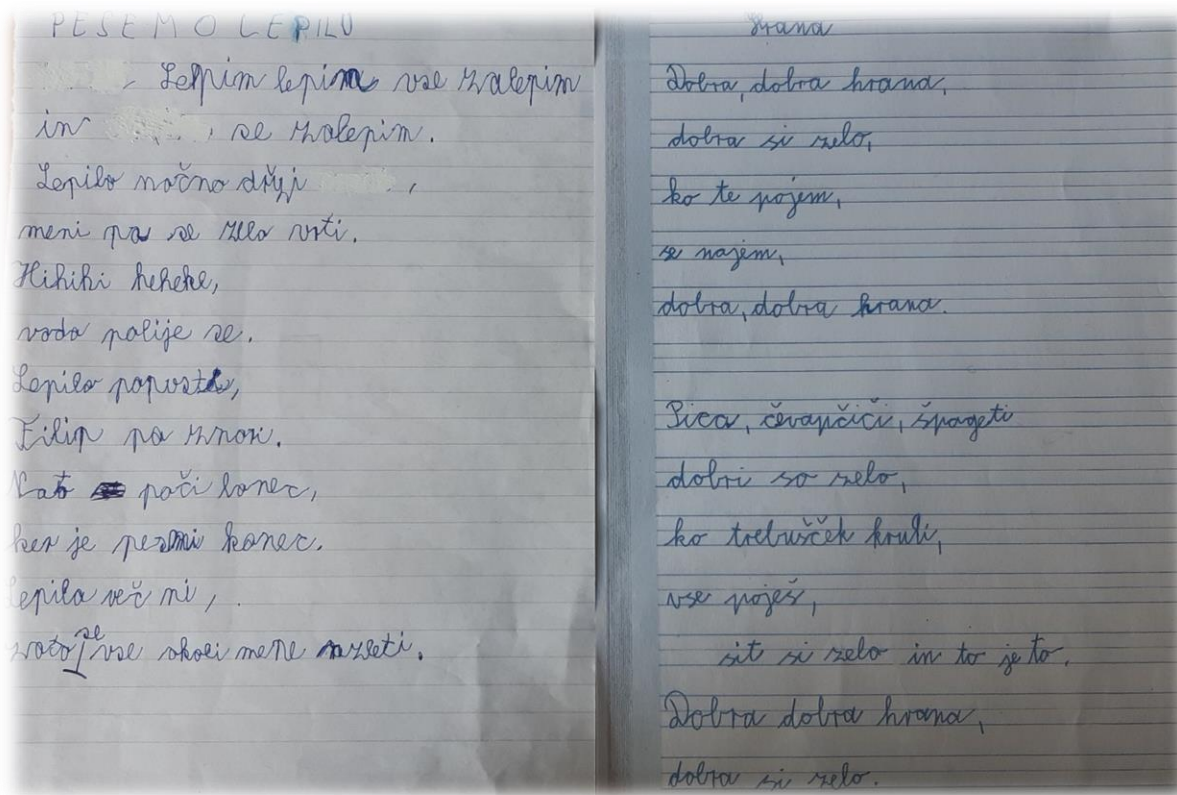 PESEM O LEPILU
Lepim lepim vse zalepim
in se zalepim.
Lepilo močno drži ,
meni pa se zelo vrti.
Hihihi hehehe,
voda polije se.
Lepilo popusti,
Filip pa znori.
Nato poči lonec,
ker je pesmi konec.
lepila več ni,
zato se vse okoli mene
Hrana
Dobra, dobra hrana,
dobra si zelo,
ko te pojem,
se najem,
dobra, dobra hrana.
Pica, čevapčiči, špageti
dobri so zelo,
ko trebušček kruli,
vse poješ,
sit si zelo in to je to.
Dobra dobra hrana,
dobra si zelo.